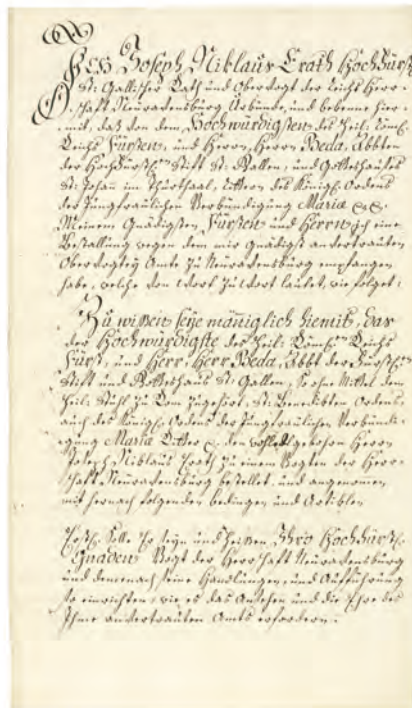 Ich Joseph Niklaus Erath Hochfürstl.
St: Gallischer Rath und Obervogt der Reichs Herr-
schaft Neuravensburg Urkunde, und bekenne hier-
mit, daß von dem Hochwürdigsten des Heil: Röm:
Reichs Fürsten, und Herrn, Herrn Beda, Abbten
der Hochfürstl: Stift St: Gallen, und Gotteshauses
St: Johann im Thurthaal, Rittern des Königl. Ordens
der Jungfräulichen Verkündigung Mariæ
Meinem Gnädigsten Fürsten und Herrn ich eine
Bestallung wegen dem mir gnädigst anvertrauten
Obervogtey Amte zu Neuravensburg empfangen
habe, welche von Wort zu Wort lautet, wie folget:
Zu wissen seye männiglich hiemit, das
der Hochwürdigste des Heil: Röm: Reichs
Fürst, und Herr, Herr Beda, Abbt der Fürstl:
Stift und Gotteshaus St: Gallen, so ohne Mittel dem
Heil: Stuhl zu Rom zugehört, St: Benedikten Ordens
auch des Königl. Ordens der Jungfräulichen Verkündi-
gung Mariä Ritter den wohledelgebohrn Herrn
Joseph Niklaus Erath zu einem Vogten der Herr-
schaft Neuravensburg bestellet, und angenomen
mit hernach folgenden bedingen und Artiklen
Erstl: Solle Er seyn und heißen Ihro Hochfürstl:
Gnaden Vogt der Herrschaft Neuravensburg
und demnach seine Handlungen, und Aufführung
so einrichten, wie es das Ansehen und die Ehre des
Ihme anvertrauten Amts erfordern.